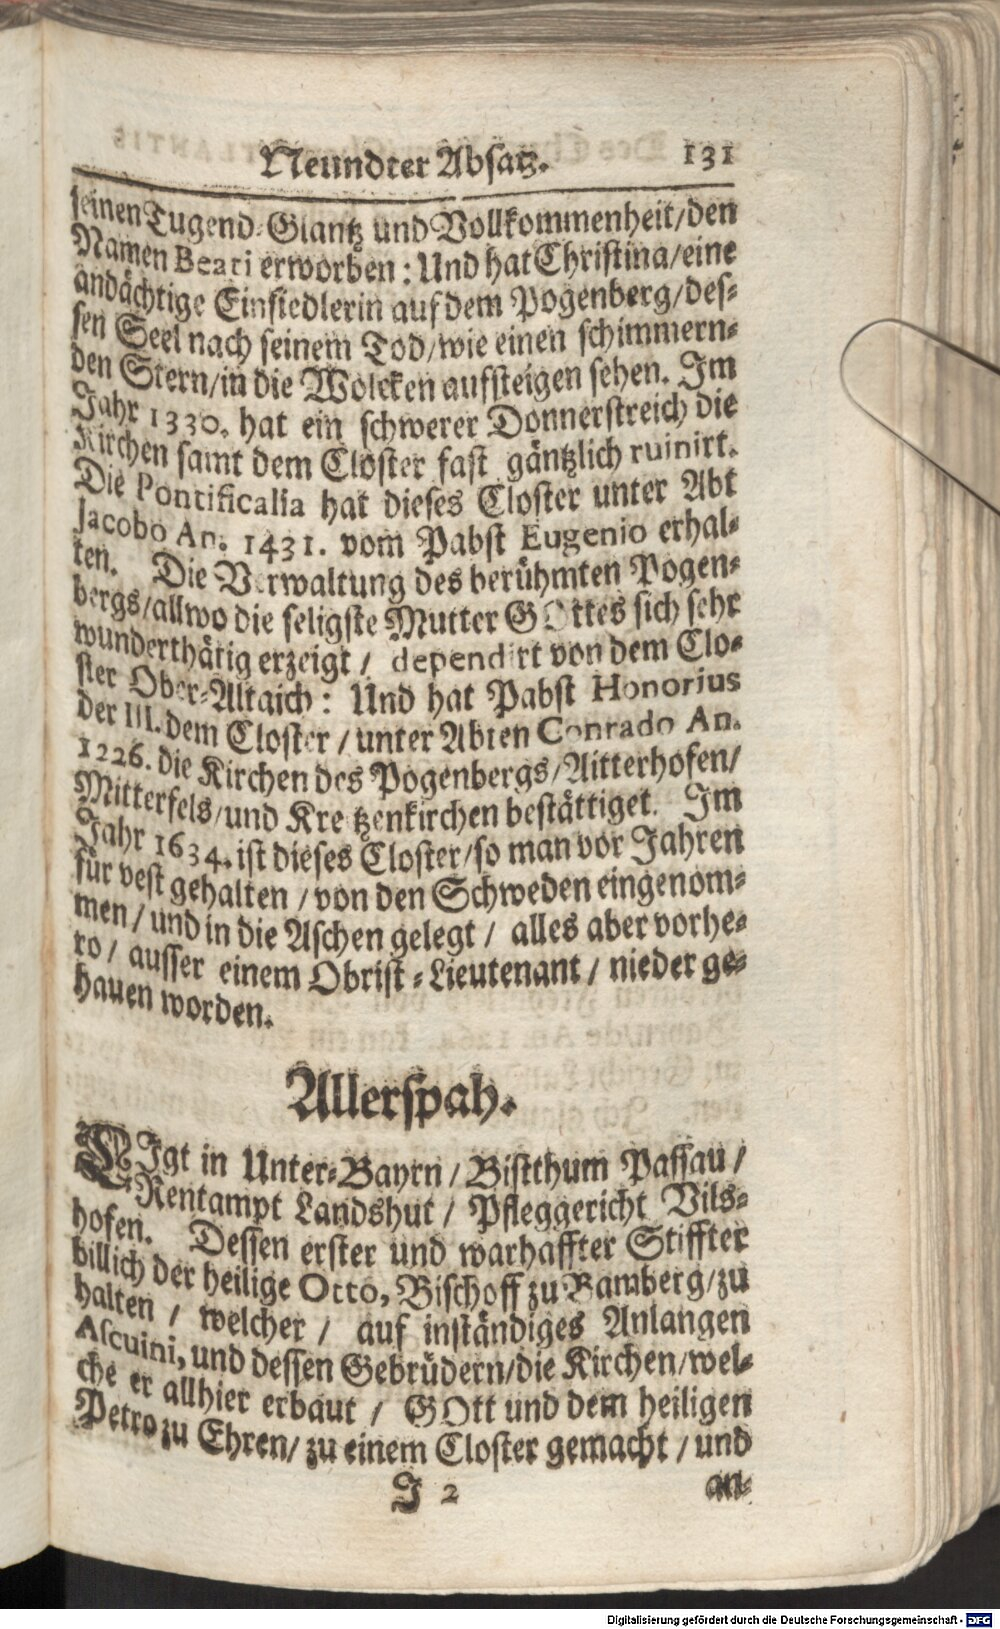 Neundter Absatz. 131
seinen Tugend-Glantz und Vollkommenheit/den
Namen Beati erworben: Und hat Christina/eine
andächtige Einsiedlerin auf dem Pogenberg/des-
sen Seel nach seinem Tod/wie einen schimmern-
den Stern/in die Wolcken aufsteigen sehen. Im
Jahr 1330. hat ein schwerer Donnerstreich die
Kirchen samt dem Closter fast gäntzlich ruinirt.
Die Pontificalia hat dieses Closter unter Abt
Jacobo An. 1431. vom Pabst Eugenio erhal-
ten. Die Verwaltung des berühmten Pogen-
bergs/allwo die seligste Mutter GOttes sich sehr
wunderthätig erzeigt / dependirt von dem Clo-
ster Ober-Altaich: Und hat Pabst Honorius
der III. dem Closter / unter Abten Conrado An.
1226. die Kirchen des Pogenbergs/Aitterhofen/
Mitterfels/und Kreitzenkirchen bestättiget. Im
Jahr 1634. ist dieses Closter/so man vor Jahren
für vest gehalten / von den Schweden eingenom-
men / und in die Aschen gelegt / alles aber vorhe-
ro / ausser einem Obrist-Lieutenant / nieder ge-
hauen worden.
Allerspah.
LIgt in Unter-Bayrn / Bistthum Passau /
Rentampt Landshut / Pfleggericht Vils-
hofen. Dessen erster und warhaffter Stiffter
billich der heilige Otto, Bischoff zu Bamberg/zu
halten / welcher / auf inständiges Anlangen
Ascuini, und dessen Gebrüdern/die Kirchen/wel-
che er allhier erbaut / GOtt und dem heiligen
Petro zu Ehren/ zu einem Closter gemacht / und
J 2 an-
Digitalisierung gefördert durch die Deutsche Forschungsgemeinschaft - DFG